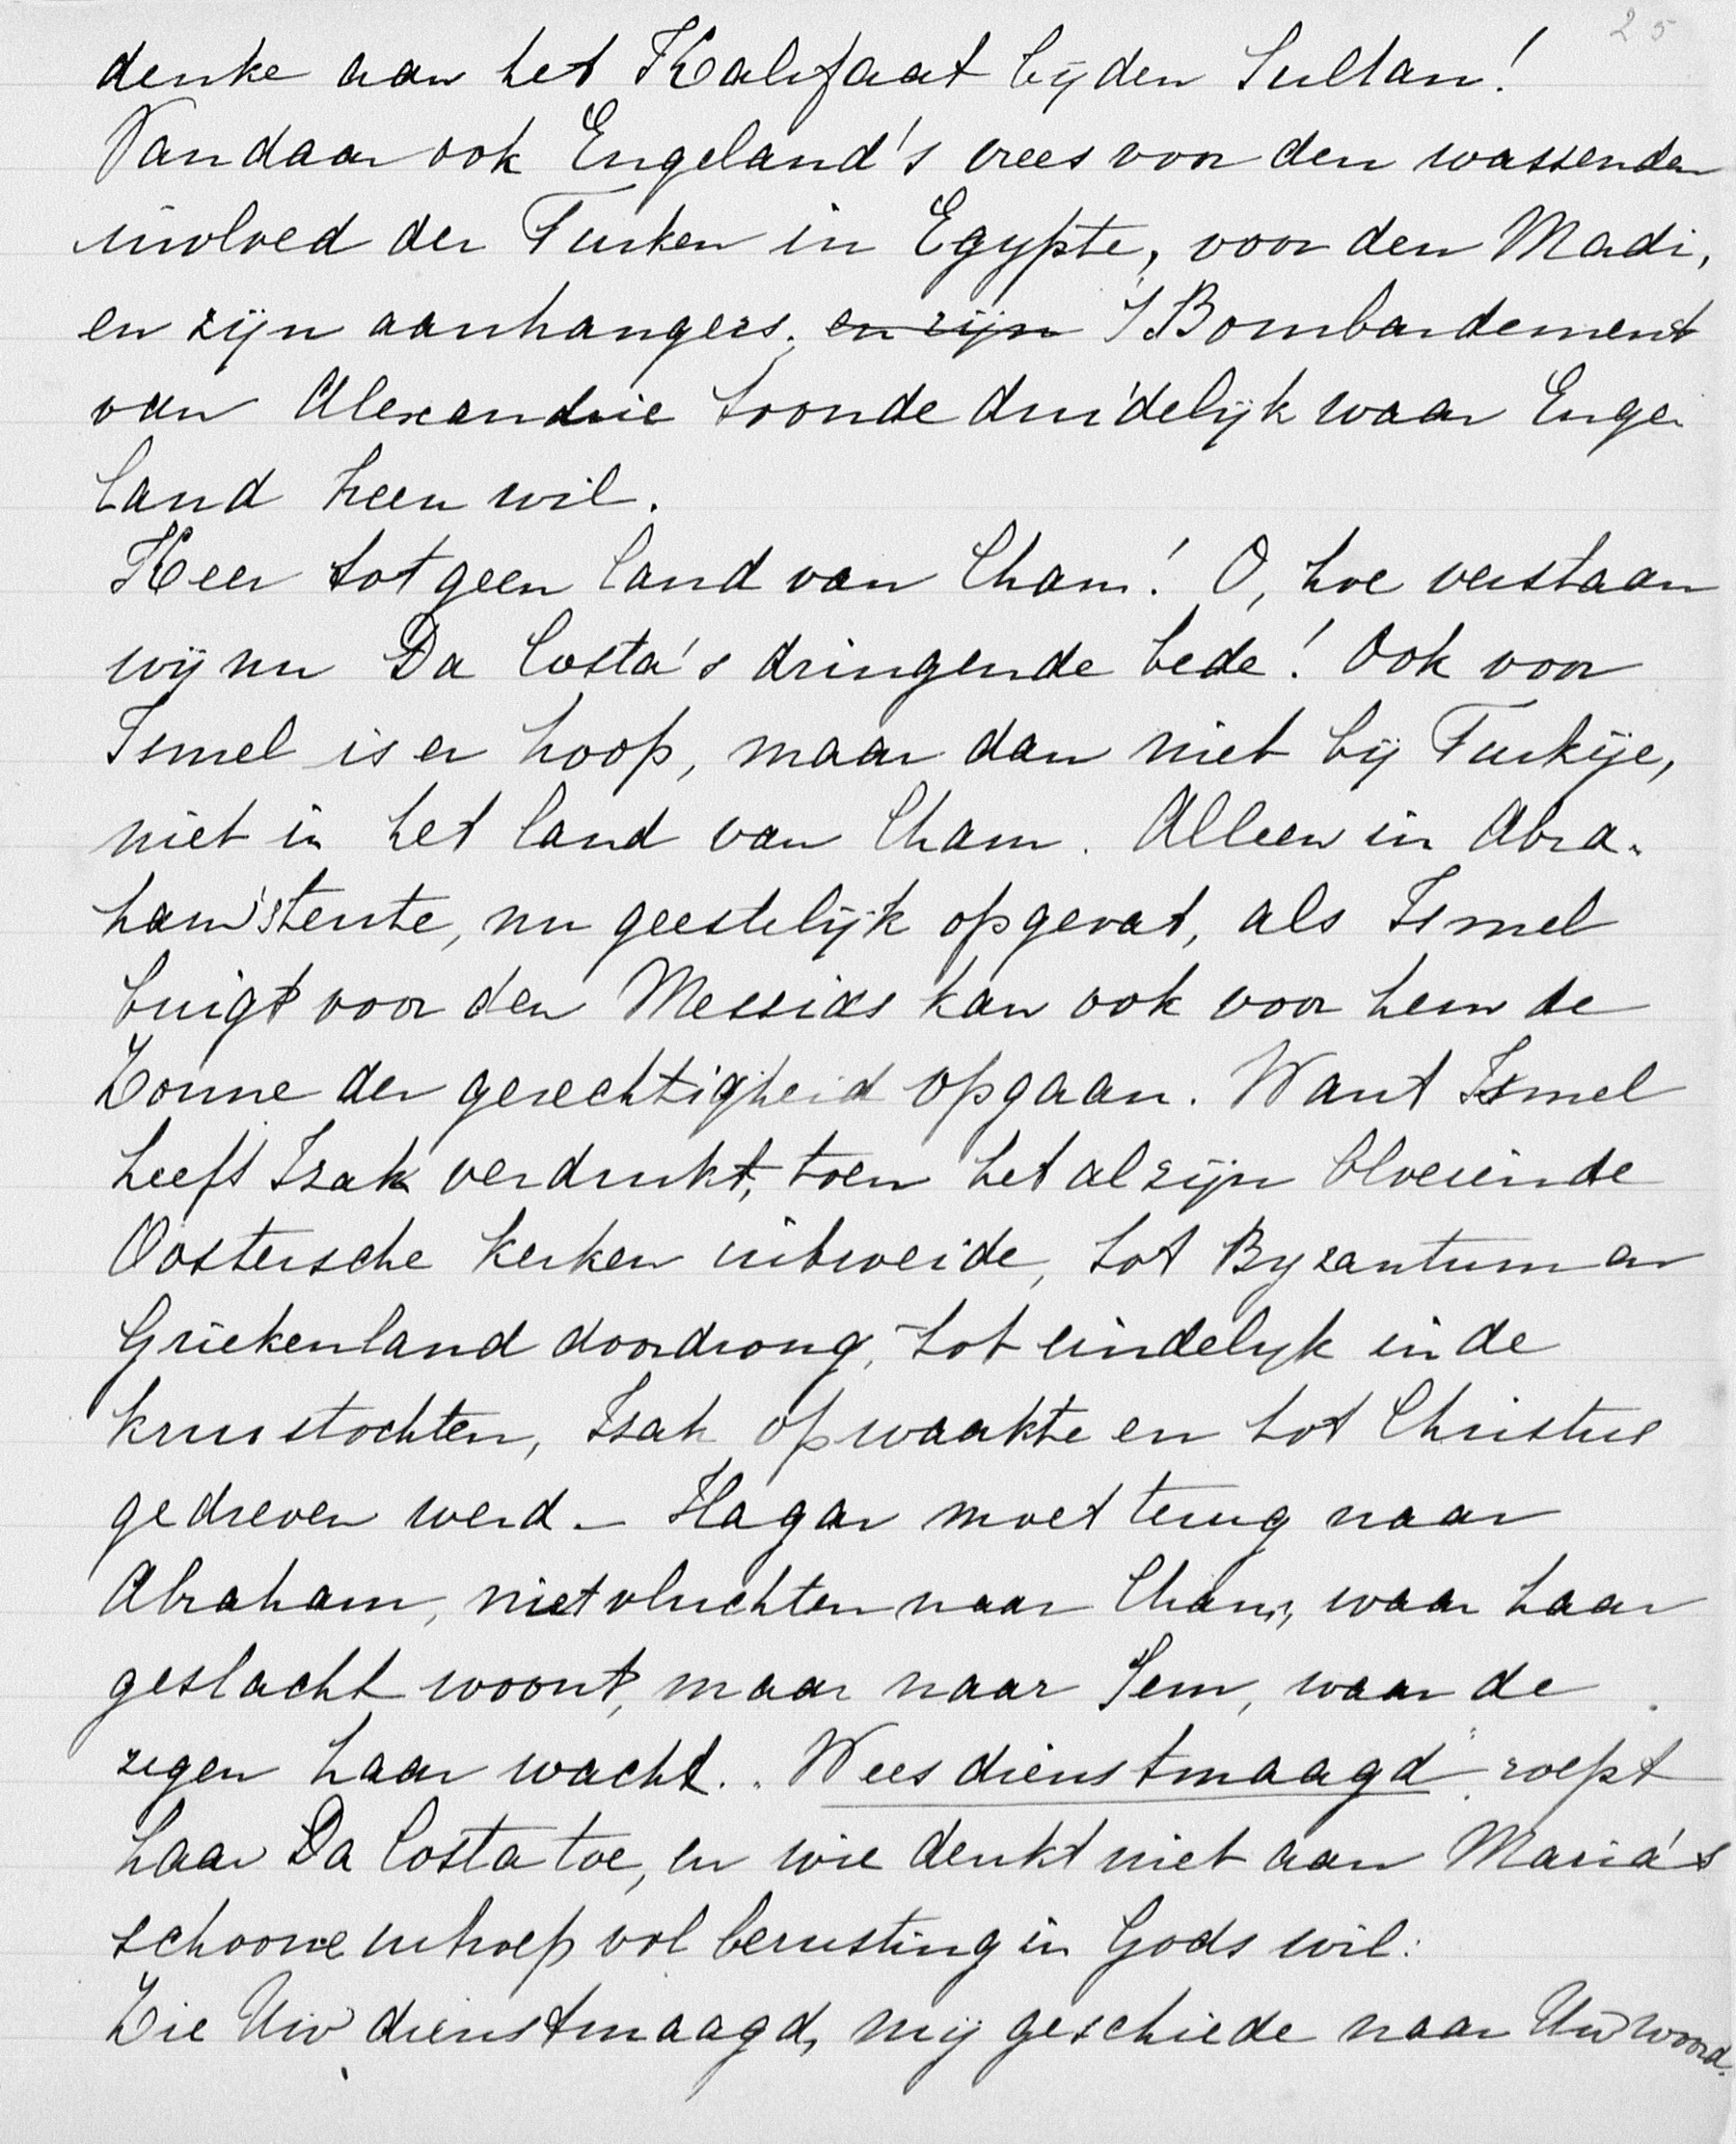 25
denke aan het Kalifaat bij den Sultan!
Vandaar ook Engeland's vrees voor den wassenden
invloed der Turken in Egypte, voor den Madi,
en zijn aanhangers; en zijn 't Bombardement
van Alexandrie toonde duidelijk waar Enge-
land heen wil.
Keer tot geen land van Cham! O, hoe verstaan
wij nu Da Costa's dringende bede! Ook voor
Ismel is er hoop, maar dan niet bij Turkije,
niet in het land van Cham. Alleen in Abra-
ham's tente, nu geestelijk opgevat, als Ismel
buigt voor den Messias kan ook voor hem de
Zonne der gerechtigheid opgaan. Want Ismel
heeft Izak verdrukt, toen het al zijn bloeiende
Oostersche kerken uitroeide, tot Byzantium en
Griekenland doordrong, tot eindelijk in de
kruistochten, Izak opwaakte en tot Christus
gedreven werd. - Hagar moet terug naar
Abraham, niet vluchten naar Cham, waar haar
geslacht woont, maar naar Sem, waar de
zegen haar wacht. "Wees dienstmaagd" roept
haar Da Costa toe, en wie denkt niet aan Maria's
schoone uitroep vol berusting in Gods wil:
Zie Uw dienstmaagd, mij geschiede naar Uw woord.